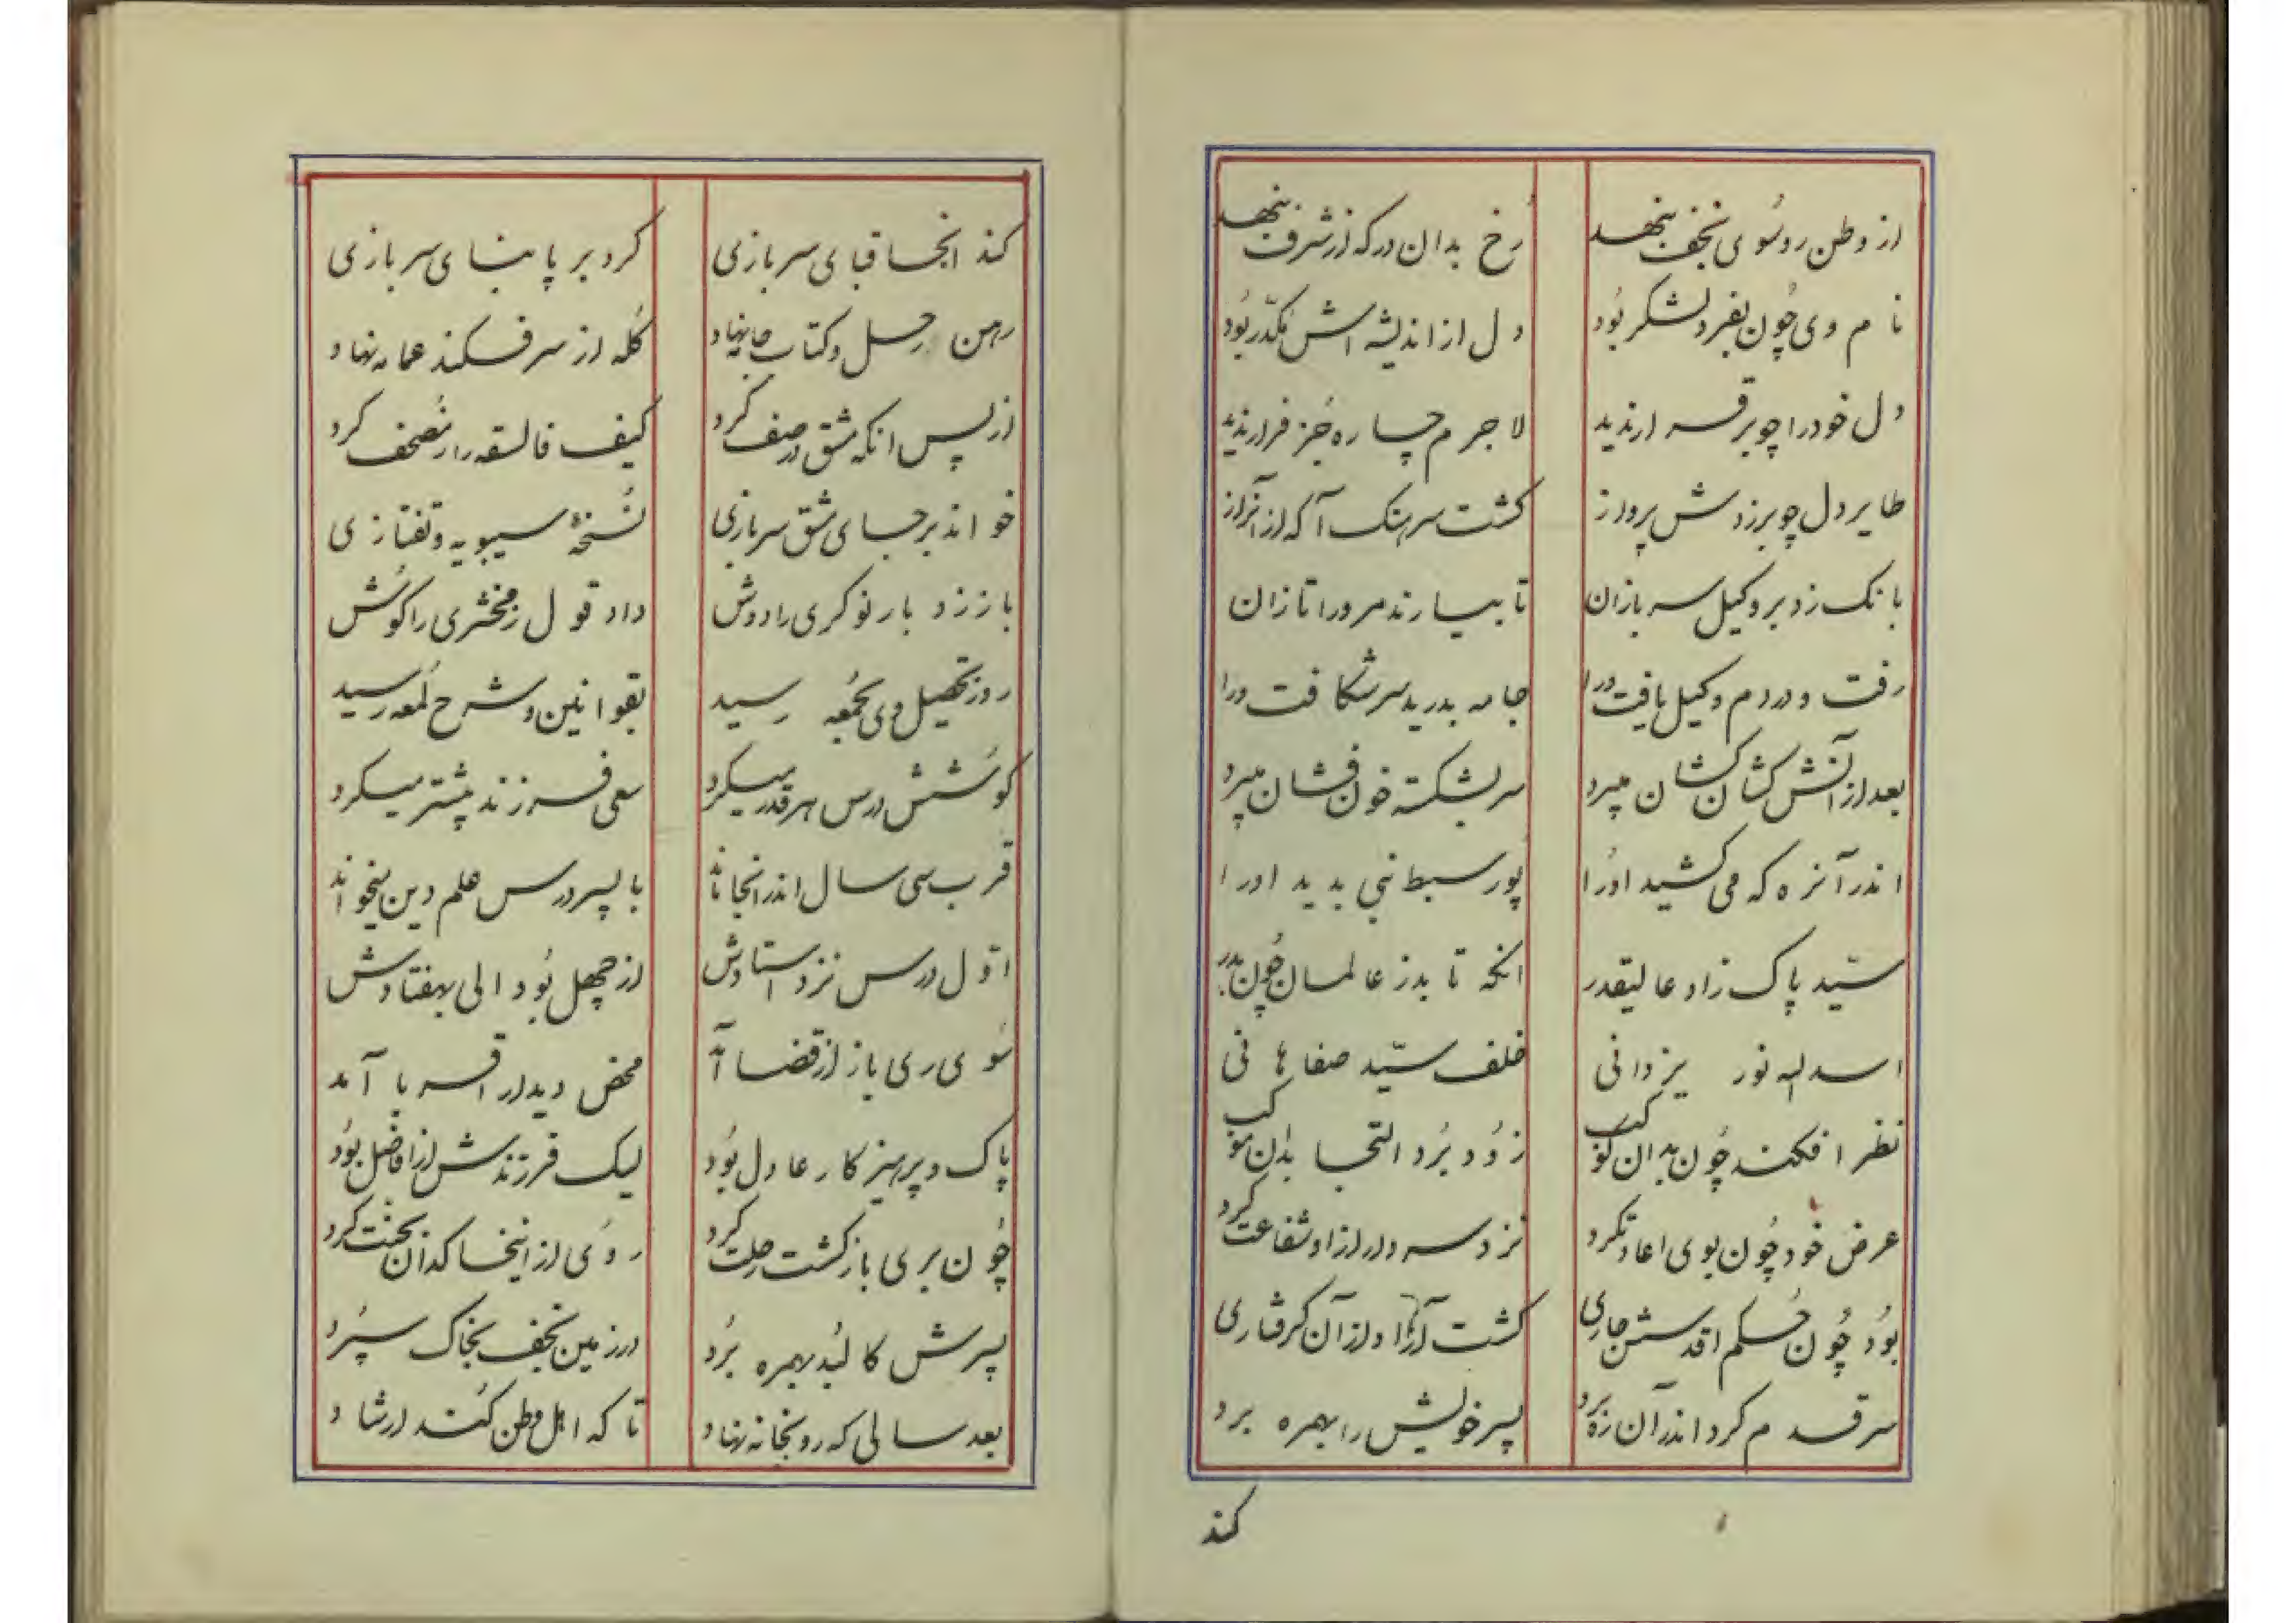 از وطن رو سُوی نجف بنهد
رُخ بدان درکه از شرف بنهد
نام وی چُون بفرد لشکر بُود
دل از اندیشه اش مُکدّر بُود
دل خود را چو برقرار ندید
لاجرم چاره جُز فرار ندید
طایر دل چو بر زدش پرواز
کشت سرهنک آکه از آنراز
بانک زد بر وکیل سربازان
تا بیارند مرورا تازان
رفت و در دم وکیل یافت ورا
جامه بدرید سر شکافت ورا
بعد از آنش کشان کشان میبرد
سر بشکسته خون فشان میبرد
اندر آنره که می کشید اورا
پور سبط نبی بدید اورا
سیّد پاک زاد عالیقدر
انکه تا بد ز عالمان چُون بدر
اسدالله نور یزدانی
خلف سیّد صفاهانی
نظر افکند چُون بدان کوکب
زود بُرد التجا بدان موکب
عرض خود چُون بوی اعادت کرد
نزد سردار ازاو شفاعت کرد
بُود چُون حُکم اقدسش جاری
کشت آزاد از آن کرفتاری
سر قدم کرد اندر آن ره برد
پسر خویش را بهمره برد
کند
کند انجا قبای سربازی
کرد بر پا بنای سربازی
رهن رحل و کتاب جا بنهاد
کُله از سر فکند عمامه نهاد
از پس انکه مشق در صف کرد
کیف فالسقه را مُصحف کرد
خواند بر جای مشق سربازی
نُسخهٔ سیبویه و تفتازی
باز زد بار نوکری را دوش
داد قول زمخشری را کوش
روز تحصیل وی بجُمعه رسید
بقوانین و شرح لُمعه رسید
کوشش درس هر قدر میکرد
سعی فرزند بیشتر میکرد
قرب سی سال اندر انجا ماند
با پسر درس علم دین میخواند
اوّل درس نزد استادش
از چهل بُود الی بهفتادش
سُوی ری باز از قضا آمد
محض دیدار اقربا آمد
پاک و پرهیزکار عادل بُود
لیک فرزندش از افاضل بُود
چُون بری باز کشت رحلت کرد
روی از اینخاکدان بجنت کرد
پسرش کالبُد بهمره بُرد
در زمین نجف بخاک سپُرد
بعد سالی که رو بخانه نهاد
تا که اهل وطن کُند ارشاد